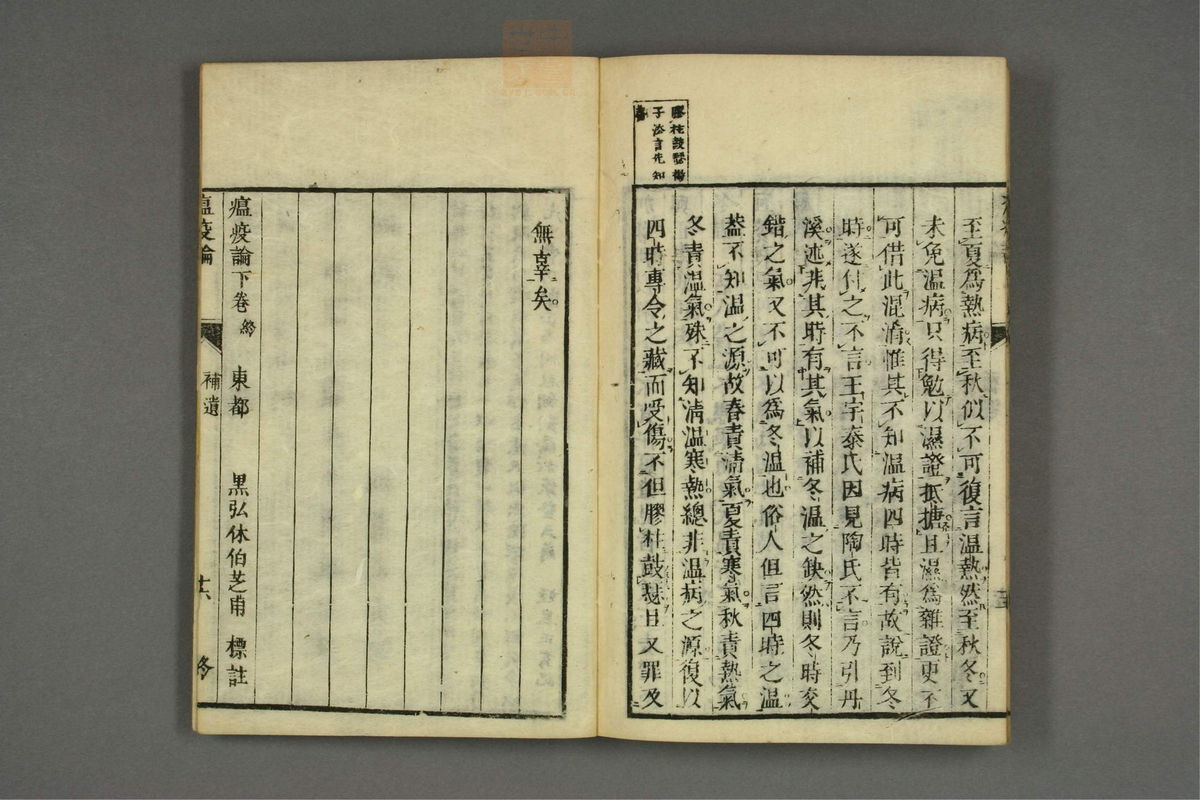 膠柱鼓瑟揚
子法言先知
至夏爲熱病至秋似不可復言温熱然至秋冬又
未免温病只得勉以濕證抵搪且濕爲雜證更不
可借此混淆惟其不知温病四時皆有故說到冬
時遂付之不言王宇泰氏因見陶氏不言乃引丹
溪述非其時有其氣以補冬温之缺然則冬時交
錯之氣又不可以爲冬温也俗人但言四時之温
葢不知温之源故春責清氣夏責寒氣秋責熱氣
冬責温氣殊不知清温寒熱總非温病之源復以
四時專令之藏而受傷不但膠柱鼓瑟且又罪及
無辜矣
瘟疫論下卷終 東都 黒弘休伯芝甫 標註
瘟疫論 補遺 十六 終